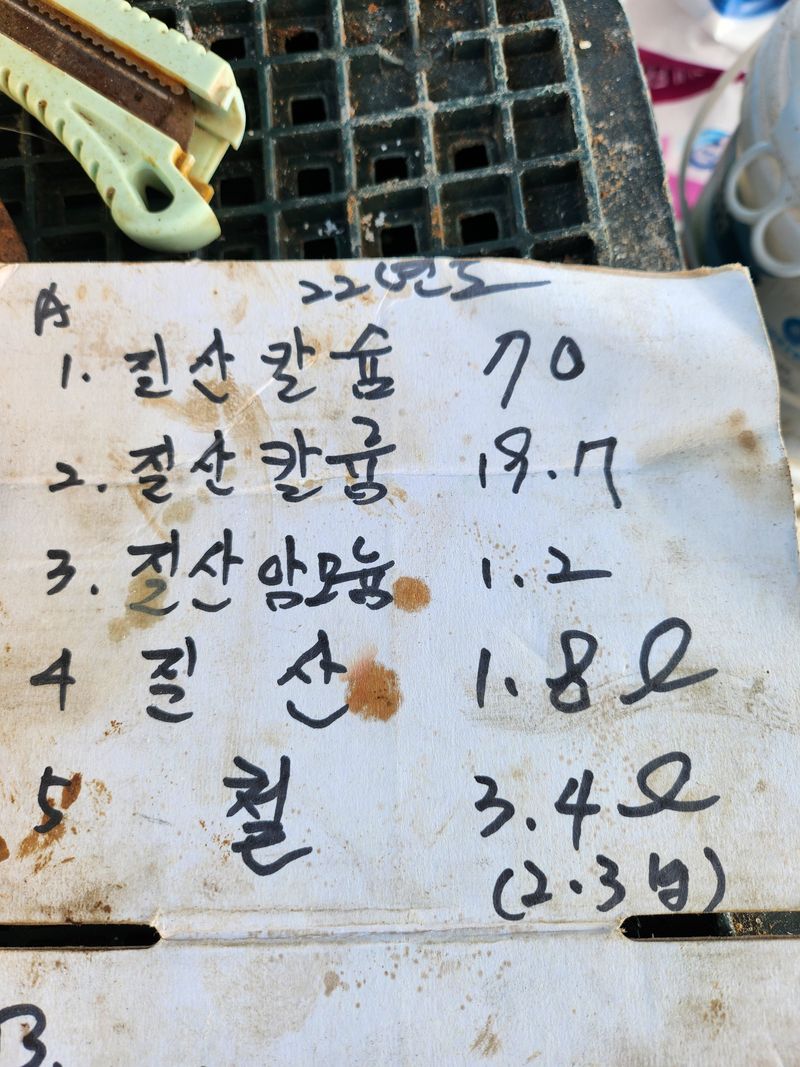 22년도
A
1. 질산칼슘 70
2. 질산칼륨 19.7
3. 질산암모늄 1.2
4 질 산 1.8ℓ
5 철 3.4ℓ
(2.3병)
B.